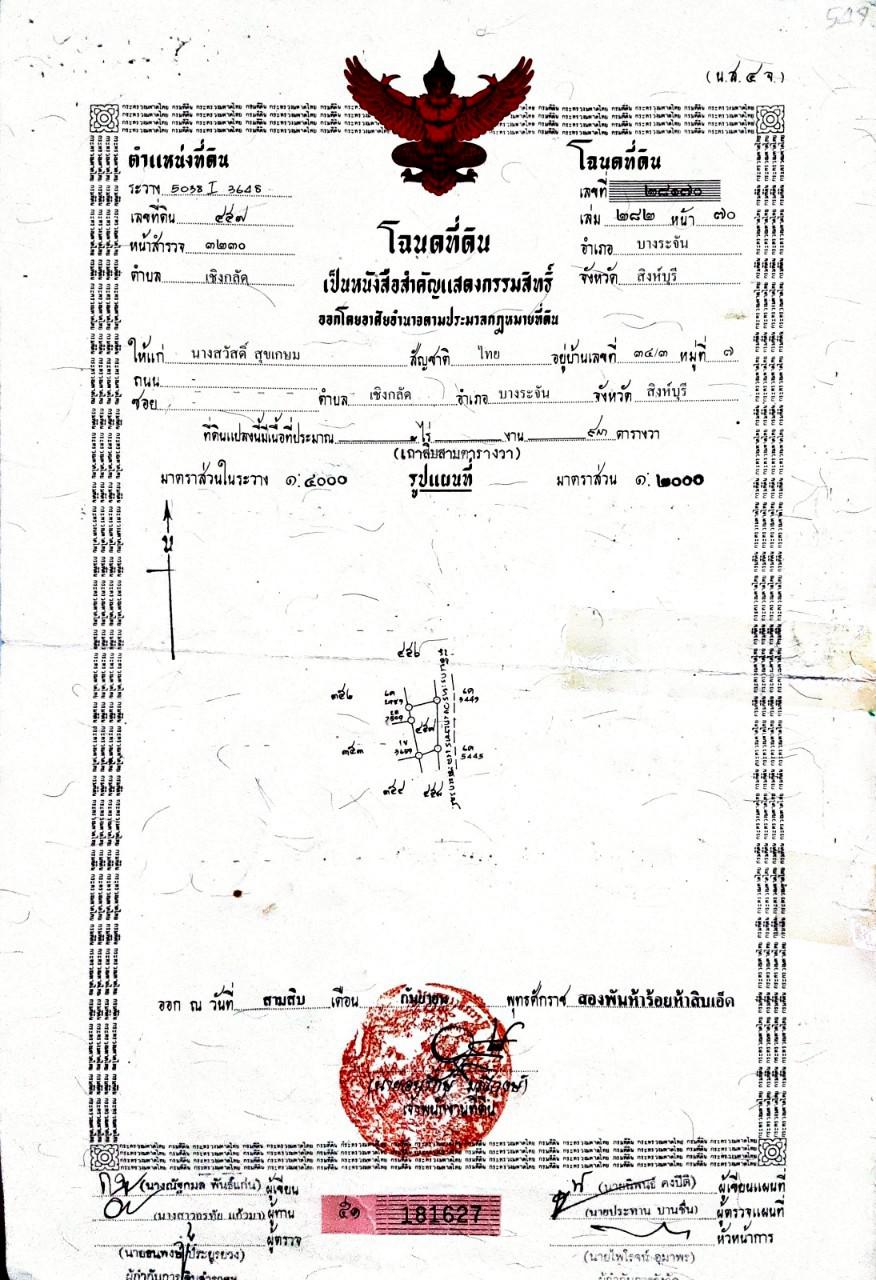 519
(น.ส.๔ จ.)
ตำแหน่งที่ดิน
ระวาง 5038 I 3648
เลขที่ดิน ๔๕๗
หน้าสำรวจ ๓๒๓๐
ตำบล เชิงกลัด
โฉนดที่ดิน
เลขที่ ๒๘๑๗๐
เล่ม ๒๘๒ หน้า ๗๐
อำเภอ บางระจัน
จังหวัด สิงห์บุรี
โฉนดที่ดิน
เป็นหนังสือสำคัญแสดงกรรมสิทธิ์
ออกโดยอาศัยอำนาจตามประมวลกฎหมายที่ดิน
ให้แก่ นางสวัสดิ์ สุขเกษม สัญชาติ ไทย อยู่บ้านเลขที่ ๓๔/๓ หมู่ที่ ๗
ถนน -
ซอย - ตำบล เชิงกลัด อำเภอ บางระจัน จังหวัด สิงห์บุรี
ที่ดินแปลงนี้มีเนื้อที่ประมาณ - ไร่ - งาน ๙๓ ตารางวา
(เก้าสิบสามตารางวา)
มาตราส่วนในระวาง ๑:๔๐๐๐ รูปแผนที่ มาตราส่วน ๑:๒๐๐๐
น
๔๕๖
๔๕๗
๓๔๓
๔๕๘
5445
ออก ณ วันที่ สามสิบ เดือน กันยายน พุทธศักราช สองพันห้าร้อยห้าสิบเอ็ด
เจ้าพนักงานที่ดิน
(นางณัฐกมล พันธ์แก่น) ผู้เขียน
(นางสาวอรทัย แก้วมา) ผู้ทาน
ผู้ตรวจ
(นายธนพงษ์ ประยูรยวง)
๕๑ 181627
(นายนิพนธ์ คงปิติ) ผู้เขียนแผนที่
(นายประทาน บานชื่น) ผู้ตรวจแผนที่
หัวหน้าการ
(นายไพโรจน์ อุมาพร)